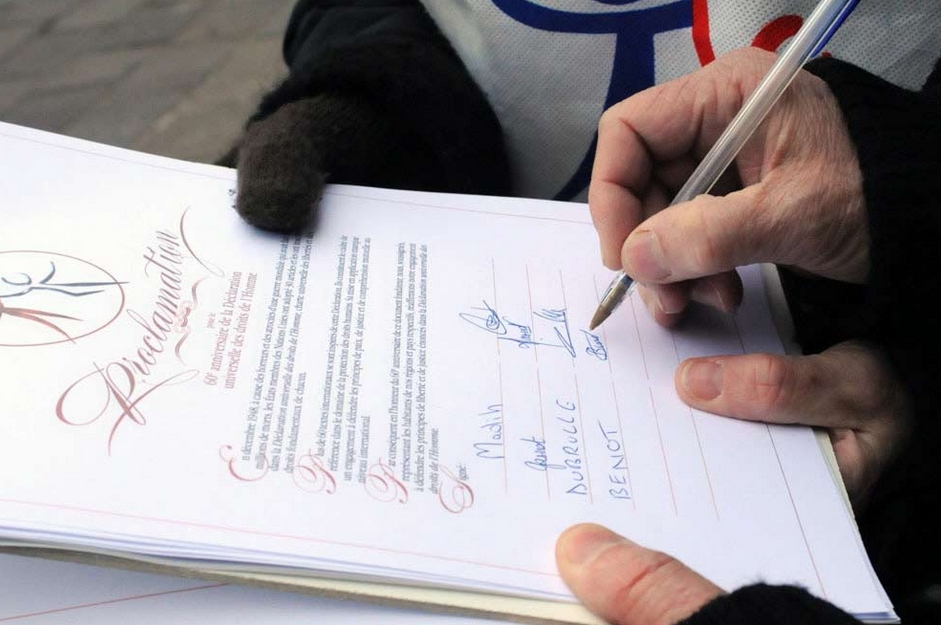 Proclamation
pour le
60e anniversaire de la Déclaration
universelle des droits de l'Homme
En décembre 1948, à cause des horreurs et des atrocités d'une guerre mondiale qui
millions de morts, les États membres des Nations Unies ont adopté 30 articles
dans la Déclaration universelle des droits de l'Homme, charte universelle des libertés et
droits fondamentaux de chacun.
Plus de 60 textes internationaux se sont inspirés de cette Déclaration. Ils constituent le cadre de
référence dans le domaine de la protection des droits humains. Sa mise en application marque
un engagement à défendre les principes de paix, de justice et de compréhension mutuelle au
niveau international.
Par conséquent en l'honneur du 60e anniversaire de ce document fondateur, nous, soussignés,
représentant les habitants de nos régions et pays respectifs, réaffirmons notre engagement
à défendre les principes de liberté et de justice énoncés dans la Déclaration universelle des
droits de l'Homme.
Signé:
Madih
DUBRULLE
BENOT